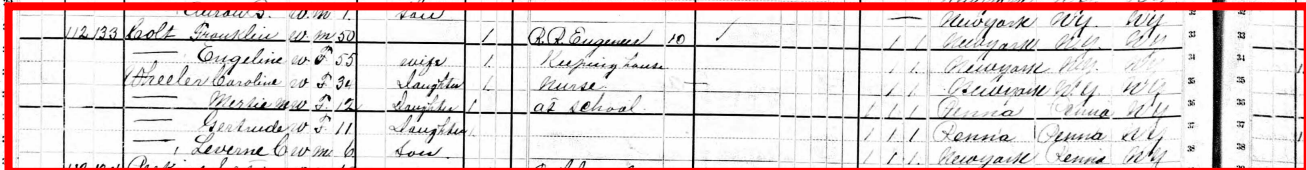 W M 1 Son — New York NY. NY
112 133 Colt Franklin W M 50 1 R.R. Engineer 10 / 1 1 New York NY. NY. 33
— Engeline W F 55 wife 1 Keeping house 1 1 New York NY. NY 34
Wheeler Caroline W F 34 Daughter 1 Nurse — 1 1 New York NY NY 35
— Mertie M W F. 12 Daughter 1 at school. 1 1 1 Penna Penna NY 36
— Gertrude W F. 11 Daughter 1 1 1 1 Penna Penna NY 37
— Leverne C W M 6 Son. 1 1 1 New York Penna NY 38